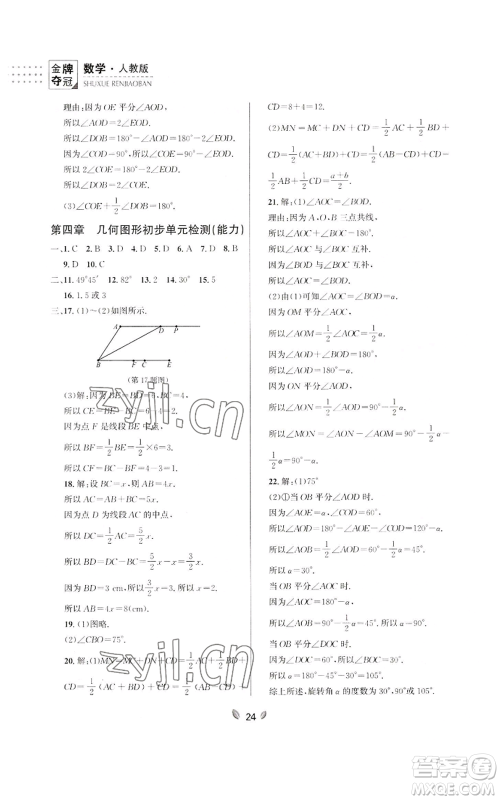 金牌夺冠 数学·人教版
SHUXUE RENJIAOBAN
理由:因为OE平分∠AOD,
所以∠AOD=2∠EOD.
所以∠DOB=180°-∠AOD=180°-2∠EOD.
因为∠COD=90°,所以∠COE=90°-∠EOD.
所以∠DOB=2∠COE.
(3)∠COE=180°-1/2∠DOB.
第四章 几何图形初步单元检测(能力)
一、1. C 2. B 3. D 4. D 5. D 6. A 7. D 8. B
9. D 10. C
二、11. 49°45′ 12. 82° 13. 4 14. 30° 15. 5
16. 1.5或3
三、17. (1)~(2)如图所示.
A D P
B F C E
(第17题图)
(3)解:因为BE=BD=6,BC=4,
所以CE=BE-BC=6-4=2.
因为点F是线段BE的中点,
所以BF=1/2BE=1/2×6=3.
所以CF=BC-BF=4-3=1.
18. 解:设BC=x,则AB=4x.
所以AC=AB+BC=5x.
因为点D为线段AC的中点,
所以DC=1/2AC=5/2x.
所以BD=DC-BC=5/2x-x=3/2x.
因为BD=3 cm,所以x=2.
所以AB=4x=8(cm).
19. (1)图略.
(2)∠CBO=75°.
20. 解:(1)MN=MC+CD+DN=1/2AC+1/2BD+
CD=1/2(AC+BD)+CD=1/2(AB-CD)+
CD=8+4=12.
(2)MN=MC+CD+DN=1/2AC+1/2BD+
CD=1/2(AC+BD)+CD=1/2(AB-CD)+CD=
1/2AB+1/2CD=(a+b)/2.
21. 解:(1)∠AOC=∠BOD.
理由:因为A,O,B三点共线,
所以∠AOC与∠BOC互补.
因为∠BOD与∠BOC互补,
所以∠AOC=∠BOD.
(2)由(1)可知∠AOC=∠BOD=α.
因为OM平分∠AOC,
所以∠AOM=1/2∠AOC=1/2α.
因为ON平分∠AOD,
所以∠AON=1/2∠AOD=1/2(180°-∠BOD)=
90°-1/2α.
所以∠MON=∠AON-∠AOM=90°-1/2α-
1/2α=90°-α.
22. 解:(1)75°
(2)①当OP平分∠AOD时,
因为∠AOE=α,∠COD=60°,
所以∠AOD=180°-∠AOE-∠COD=120°-α.
所以α=30°.
当OB平分∠AOD时,
因为∠AOD=180°-α,
所以∠AOB=1/2∠AOD=90°-1/2α=45°.所以α=90°.
当OB平分∠DOC时,
因为∠DOC=60°,所以∠BOC=30°.
所以α=180°-45°-30°=105°.
综上所述,旋转角α的度数为30°,90°或105°.
24
zyjl.cn
zyjl.cn
答案圈
MXQE.COM